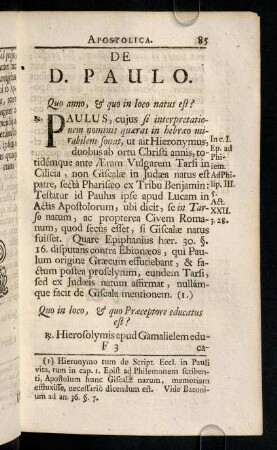 APOSTOLICA. 85
DE
D. PAULO.
Quo anno, & quo in loco natus est?
PAULUS, cujus si interpretatio-
nem nominis quæras in hebræo mi-
rabilem sonat, ut ait Hieronymus,
duobus ab ortu Christi annis, to-
tidémque ante Æram Vulgarem Tarsi in
Cilicia, non Giscalæ in Judæa natus est
patre, sectâ Pharisæo ex Tribu Benjamin:
Testatur id Paulus ipse apud Lucam in
Actis Apostolorum, ubi dicit, se in Tar-
so natum, ac propterea Civem Roma-
num, quod secùs esset, si Giscalæ natus
fuisset. Quare Epiphanius hær. 30. §.
16. disputans contra Ebionæos, qui Pau-
lum origine Græcum effutiebant, &
factum postea proselytum, eundem Tarsi,
sed ex Judæis natum affirmat, nullám-
que facit de Giscala mentionem. (1.)
In c. I.
Ep. ad
Phi-
lem.
Ad Phi-
lip. III.
5.
Act.
XXII.
3. 28.
Quo in loco, & quo Præceptore educatus
est?
℞. Hierosolymis apud Gamalielem edu-
F 3 ca-
(1) Hieronymo tum de Script. Eccl. in Pauli
vita, tum in cap. 1. Epist ad Philemonem scriben-
ti, Apostolum hunc Giscalæ natum, memoriam
effluxisse, necessariò dicendum est. Vide Baroni-
um ad an. 36. §. 7.